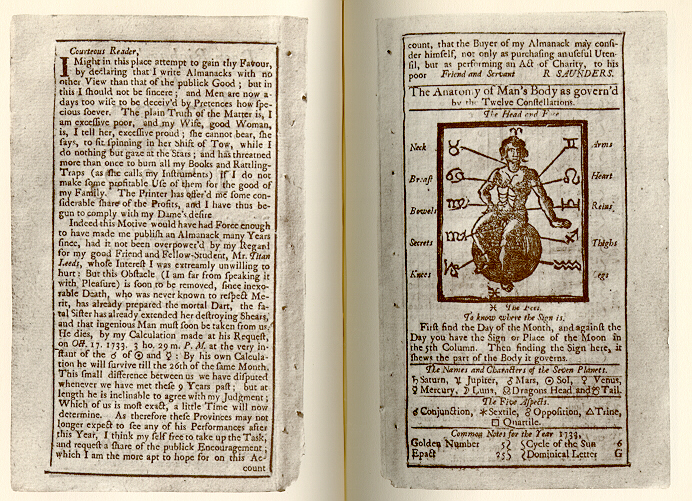 Courteous Reader,
I Might in this place attempt to gain thy Favour,
by declaring that I write Almanacks with no
other View than that of the publick Good; but in
this I ſhould not be ſincere; and Men are now a-
days too wiſe to be deceiv'd by Pretences how ſpe-
cious ſoever. The plain Truth of the Matter is, I
am exceſſive poor, and my Wife, good Woman,
is, I tell her, exceſſive proud; ſhe cannot bear, ſhe
ſays, to ſit ſpinning in her Shift of Tow, while I
do nothing but gaze at the Stars; and has threatned
more than once to burn all my Books and Rattling-
Traps (as ſhe calls my Inſtruments) if I do not
make ſome profitable Uſe of them for the good of
my Family. The Printer has offer'd me ſome con-
ſiderable ſhare of the Profits, and I have thus be-
gun to comply with my Dame's deſire
Indeed this Motive would have had Force enough
to have made me publiſh an Almanack many Years
ſince, had it not been overpower'd by my Regard
for my good Friend and Fellow-Student, Mr. Titan
Leeds, whoſe Intereſt I was extreamly unwilling to
hurt: But this Obſtacle (I am far from ſpeaking it
with Pleaſure) is ſoon to be removed, ſince inexo-
rable Death, who was never known to reſpect Me-
rit, has already prepared the mortal Dart, the fa-
tal Siſter has already extended her deſtroying Shears,
and that ingenious Man muſt ſoon be taken from us.
He dies, by my Calculation made at his Requeſt,
on Oct. 17. 1733. 3 ho. 29 m. P. M. at the very in-
ſtant of the ☌ of ☉ and ☿: By his own Calcula-
tion he will ſurvive till the 26th of the ſame Month.
This ſmall difference between us we have diſputed
whenever we have met theſe 9 Years paſt; but at
length he is inclinable to agree with my Judgment;
Which of us is moſt exact, a little Time will now
determine. As therefore theſe Provinces may not
longer expect to ſee any of his Performances after
this Year, I think my ſelf free to take up the Task,
and requeſt a ſhare of the publick Encouragement;
which I am the more apt to hope for on this Ac-
count
count, that the Buyer of my Almanack may conſi-
der himſelf, not only as purchaſing an uſeful Uten-
ſil, but as performing an Act of Charity, to his
poor Friend and Servant R. SAUNDERS.
The Anatomy of Man's Body as govern'd
by the Twelve Conſtellations.
The Head and Face
♈
Neck ♉ ♊ Arms
Breaſt ♋ ♌ Heart
Bowels ♍ ♎ Reins
Secrets ♏ ♐ Thighs
Knees ♑ ♒ Legs
♓ The Feet.
To know where the Sign is.
Firſt find the Day of the Month, and againſt the
Day you have the Sign or Place of the Moon in
the 5th Column. Then finding the Sign here, it
ſhews the part of the Body it governs.
The Names and Characters of the Seven Planets.
♄ Saturn, ♃ Jupiter, ♂ Mars, ☉ Sol, ♀ Venus,
☿ Mercury, ☽ Luna, ☊ Dragons Head and ☋ Tail.
The Five Aſpects.
☌ Conjunction, ⚹ Sextile, ☍ Oppoſition, △ Trine,
□ Quartile.
Common Notes for the Year 1733.
Golden Number 5 Cycle of the Sun 6
Epact 25 Dominical Letter G